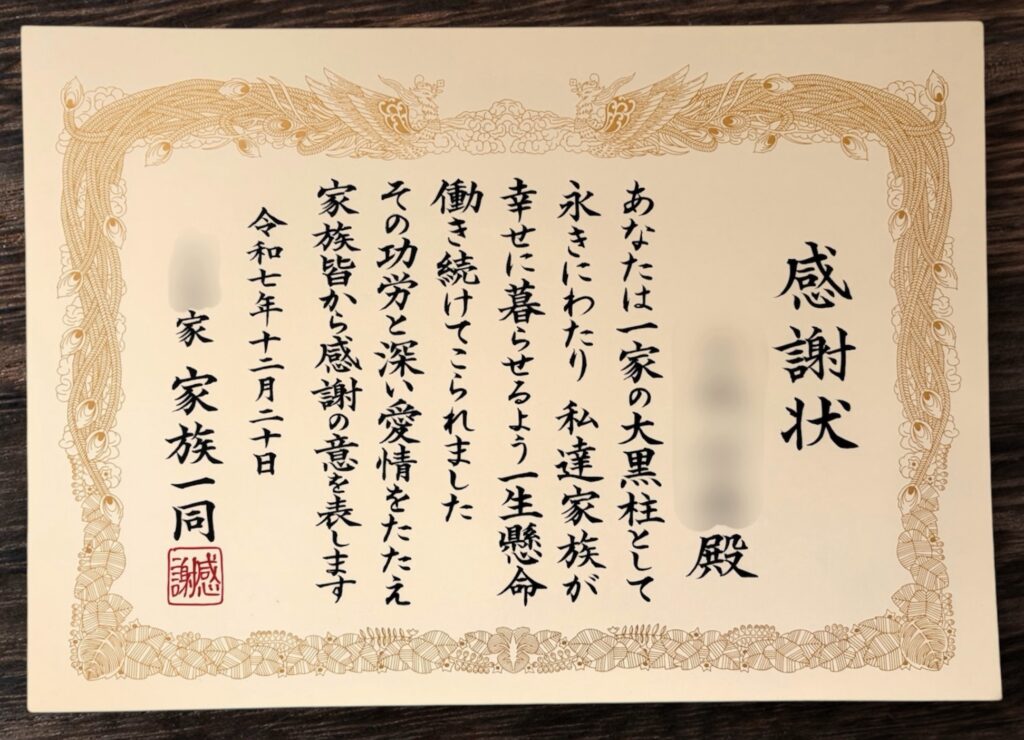 感謝状
殿
あなたは一家の大黒柱として
永きにわたり 私達家族が
幸せに暮らせるよう一生懸命
働き続けてこられました
その功労と深い愛情をたたえ
家族皆から感謝の意を表します
令和七年十二月二十日
家 家族一同
感謝